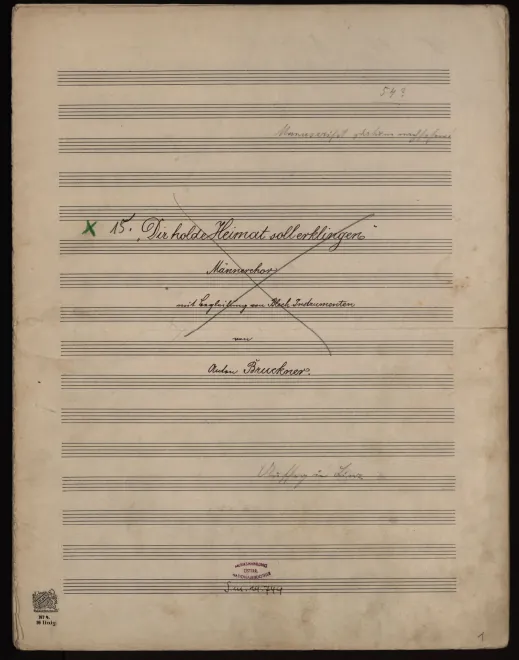 543
Manuscript
15. „Dir holde Heimat soll erklingen"
Männerchor
mit Begleitung von Blech Instrumenten
von
Anton Bruckner.
in Linz
S.m. 14.744
No 8.
16 linig.
1